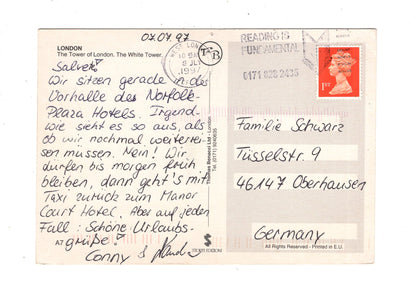 07.07.97
LONDON
The Tower of London. The White Tower.
Salve!
Wir sitzen gerade in der
Vorhalle des Norfolk-
Plaza Hotels. Irgend-
wie sieht es so aus, als
ob wir nochmal weiterrei-
sen müssen. Nein! Wir
dürfen bis morgen früh
bleiben, dann geht's mit
Taxi zurück zum Manor
Court Hotel. Aber auf jeden
Fall: Schöne Urlaubs-
grüße!
Conny &
READING IS
FUNDAMENTAL
0171 828 2435
8 JL
1997
1ST
Familie Schwarz
Tüsselstr. 9
46147 Oberhausen
Germany
All Rights Reserved - Printed in E.U.